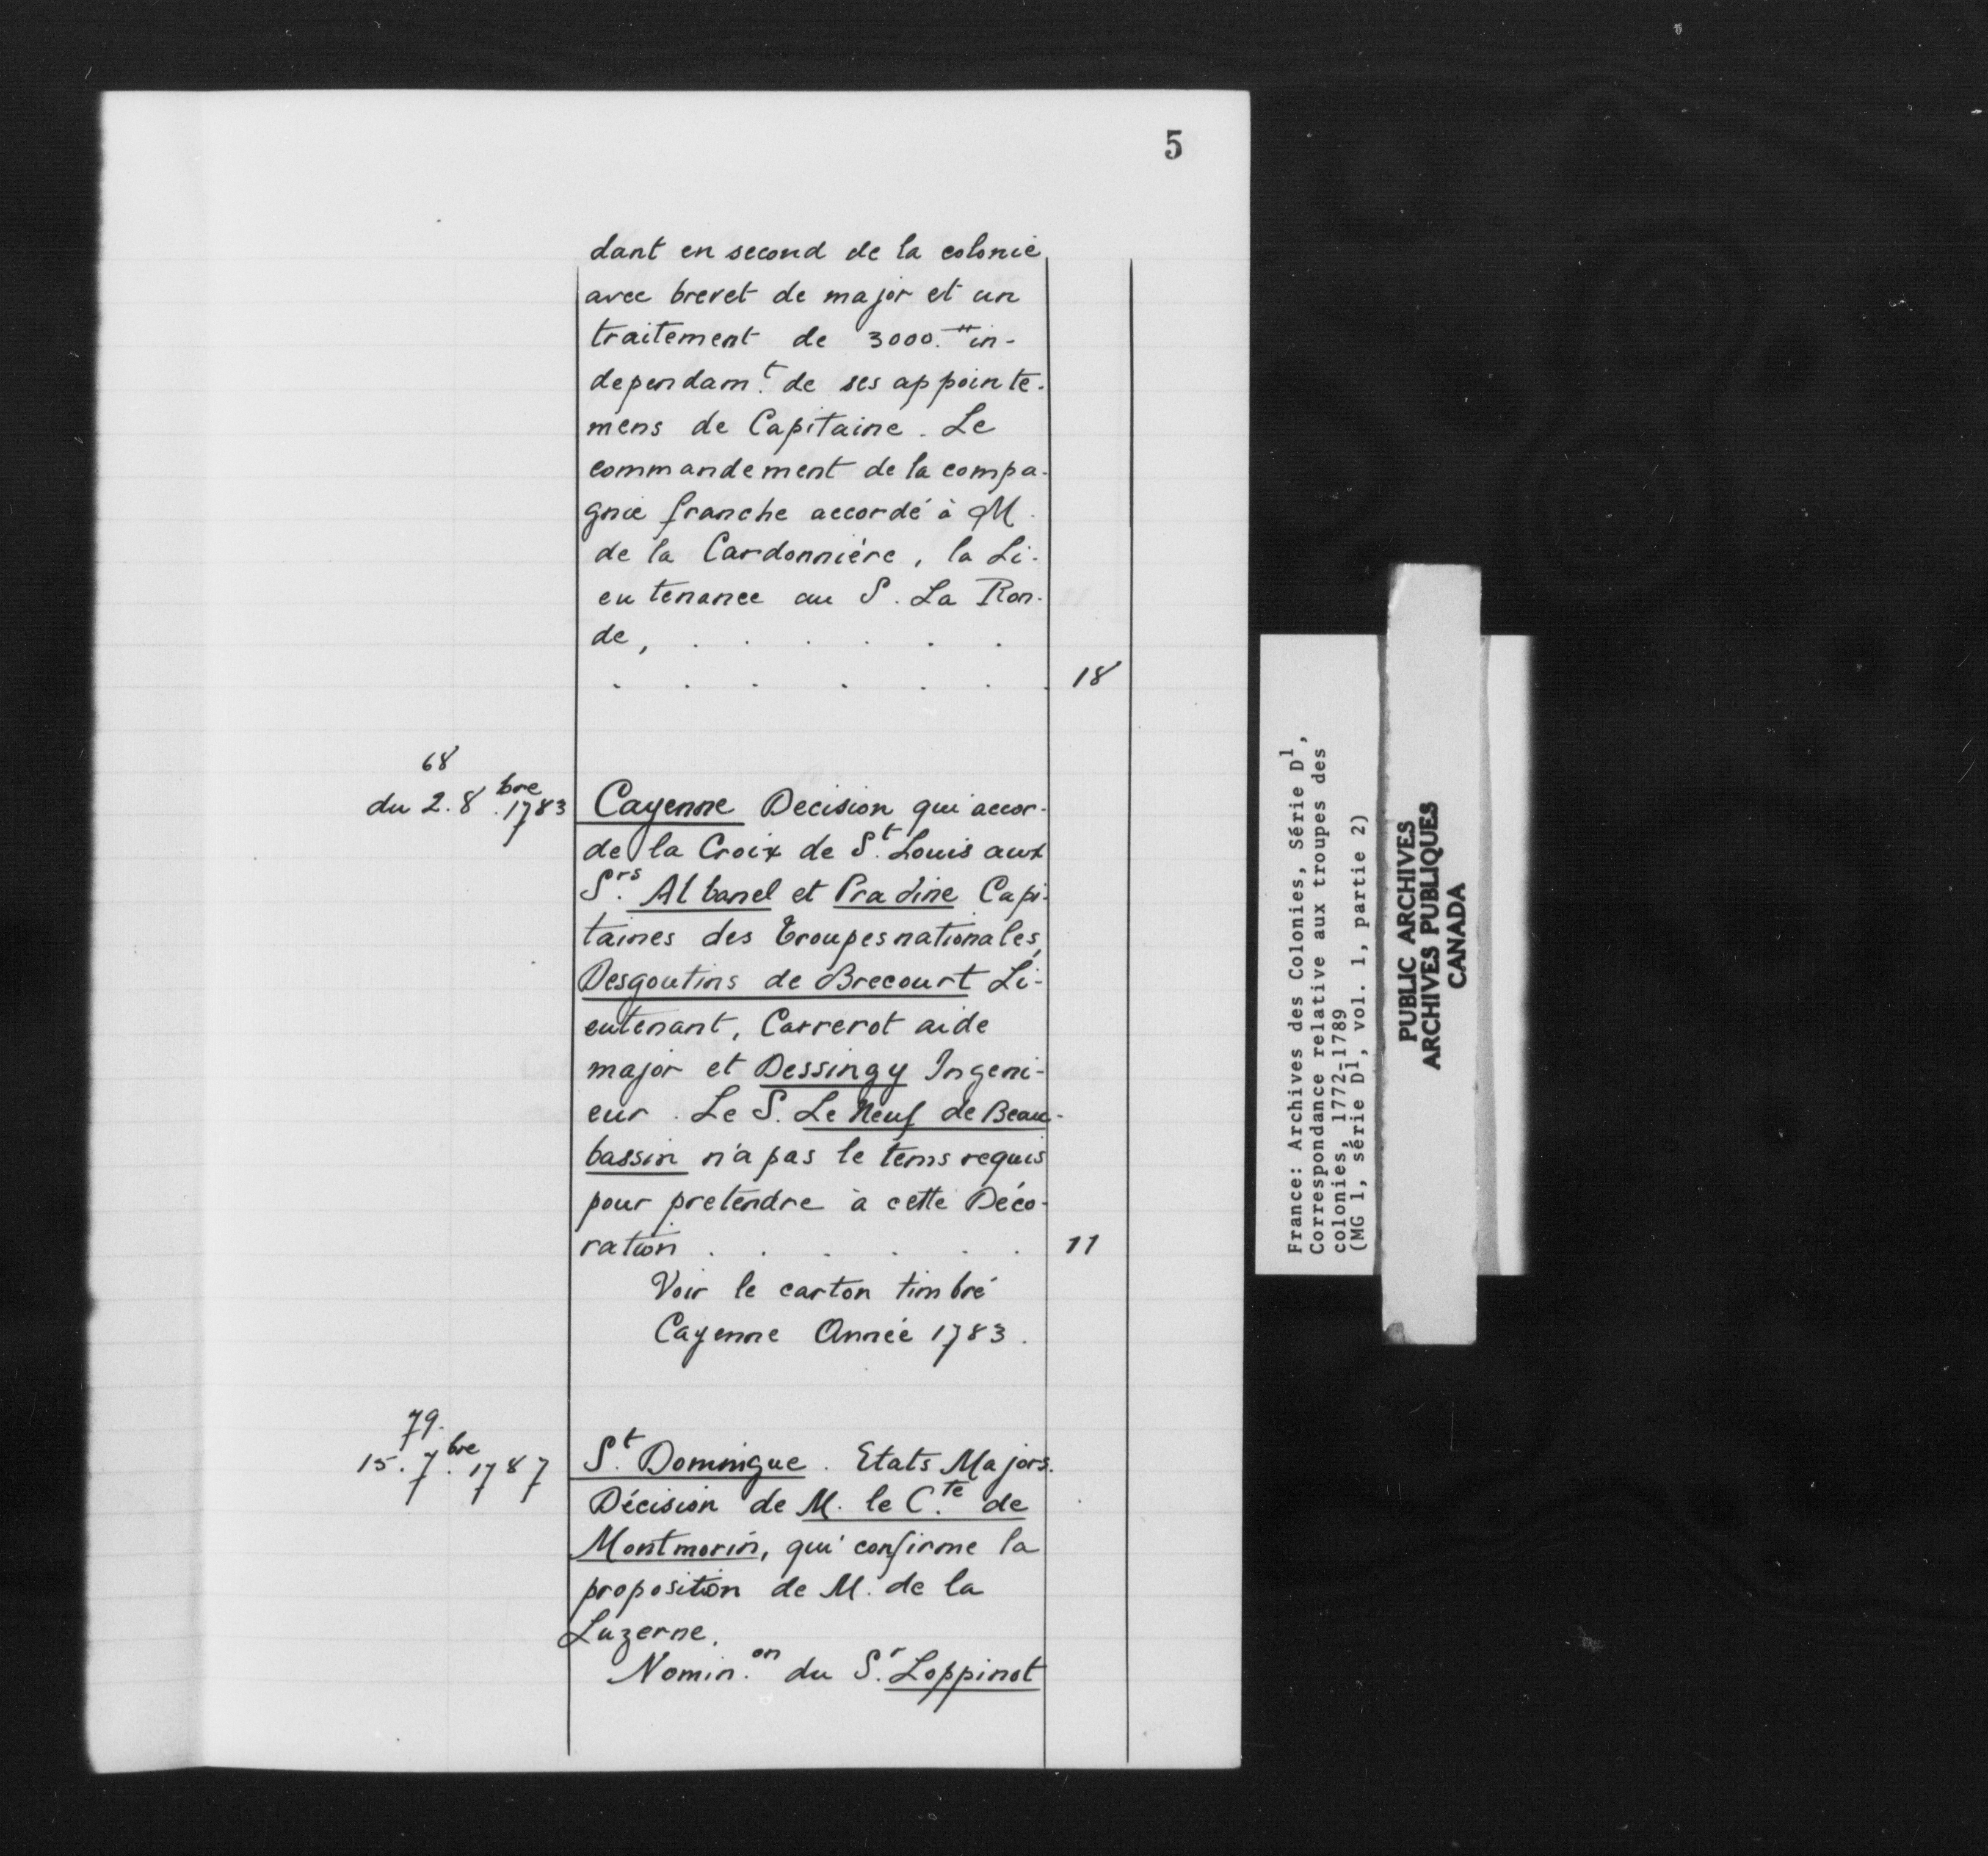 5
dant en second de la colonie
avec brevet de major et un
traitement de 3000.# in-
dependam.t de ses appointe-
mens de Capitaine. Le
commandement de la compa-
gnie franche accordé à M.
de la Cardonnière, la Li-
eutenance au S. La Ron-
de, . . . . . .
. . . . . . . 18
68
du 2. 8.bre 1783 Cayenne Decision qui accor-
de la Croix de S.t Louis aux
S.rs Albanel et Pradine Capi-
taines des Troupes nationales,
Desgoutins de Brecourt Li-
eutenant, Carrerot aide
major et Dessingy Ingeni-
eur. Le S. Le Neuf de Beau-
bassin n'a pas le tems requis
pour pretendre à cette Déco-
ration . . . . . . 11
Voir le carton timbré
Cayenne Année 1783.
79.
15. 7.bre 1787 S.t Domingue. Etats Majors.
Décision de M. le C.te de
Montmorin, qui confirme la
proposition de M. de la
Luzerne.
Nomin.on du S.r Loppinot
France: Archives des Colonies, Série D1,
Correspondance relative aux troupes des
colonies, 1772-1789
(MG 1, série D1, vol. 1, partie 2)
PUBLIC ARCHIVES
ARCHIVES PUBLIQUES
CANADA